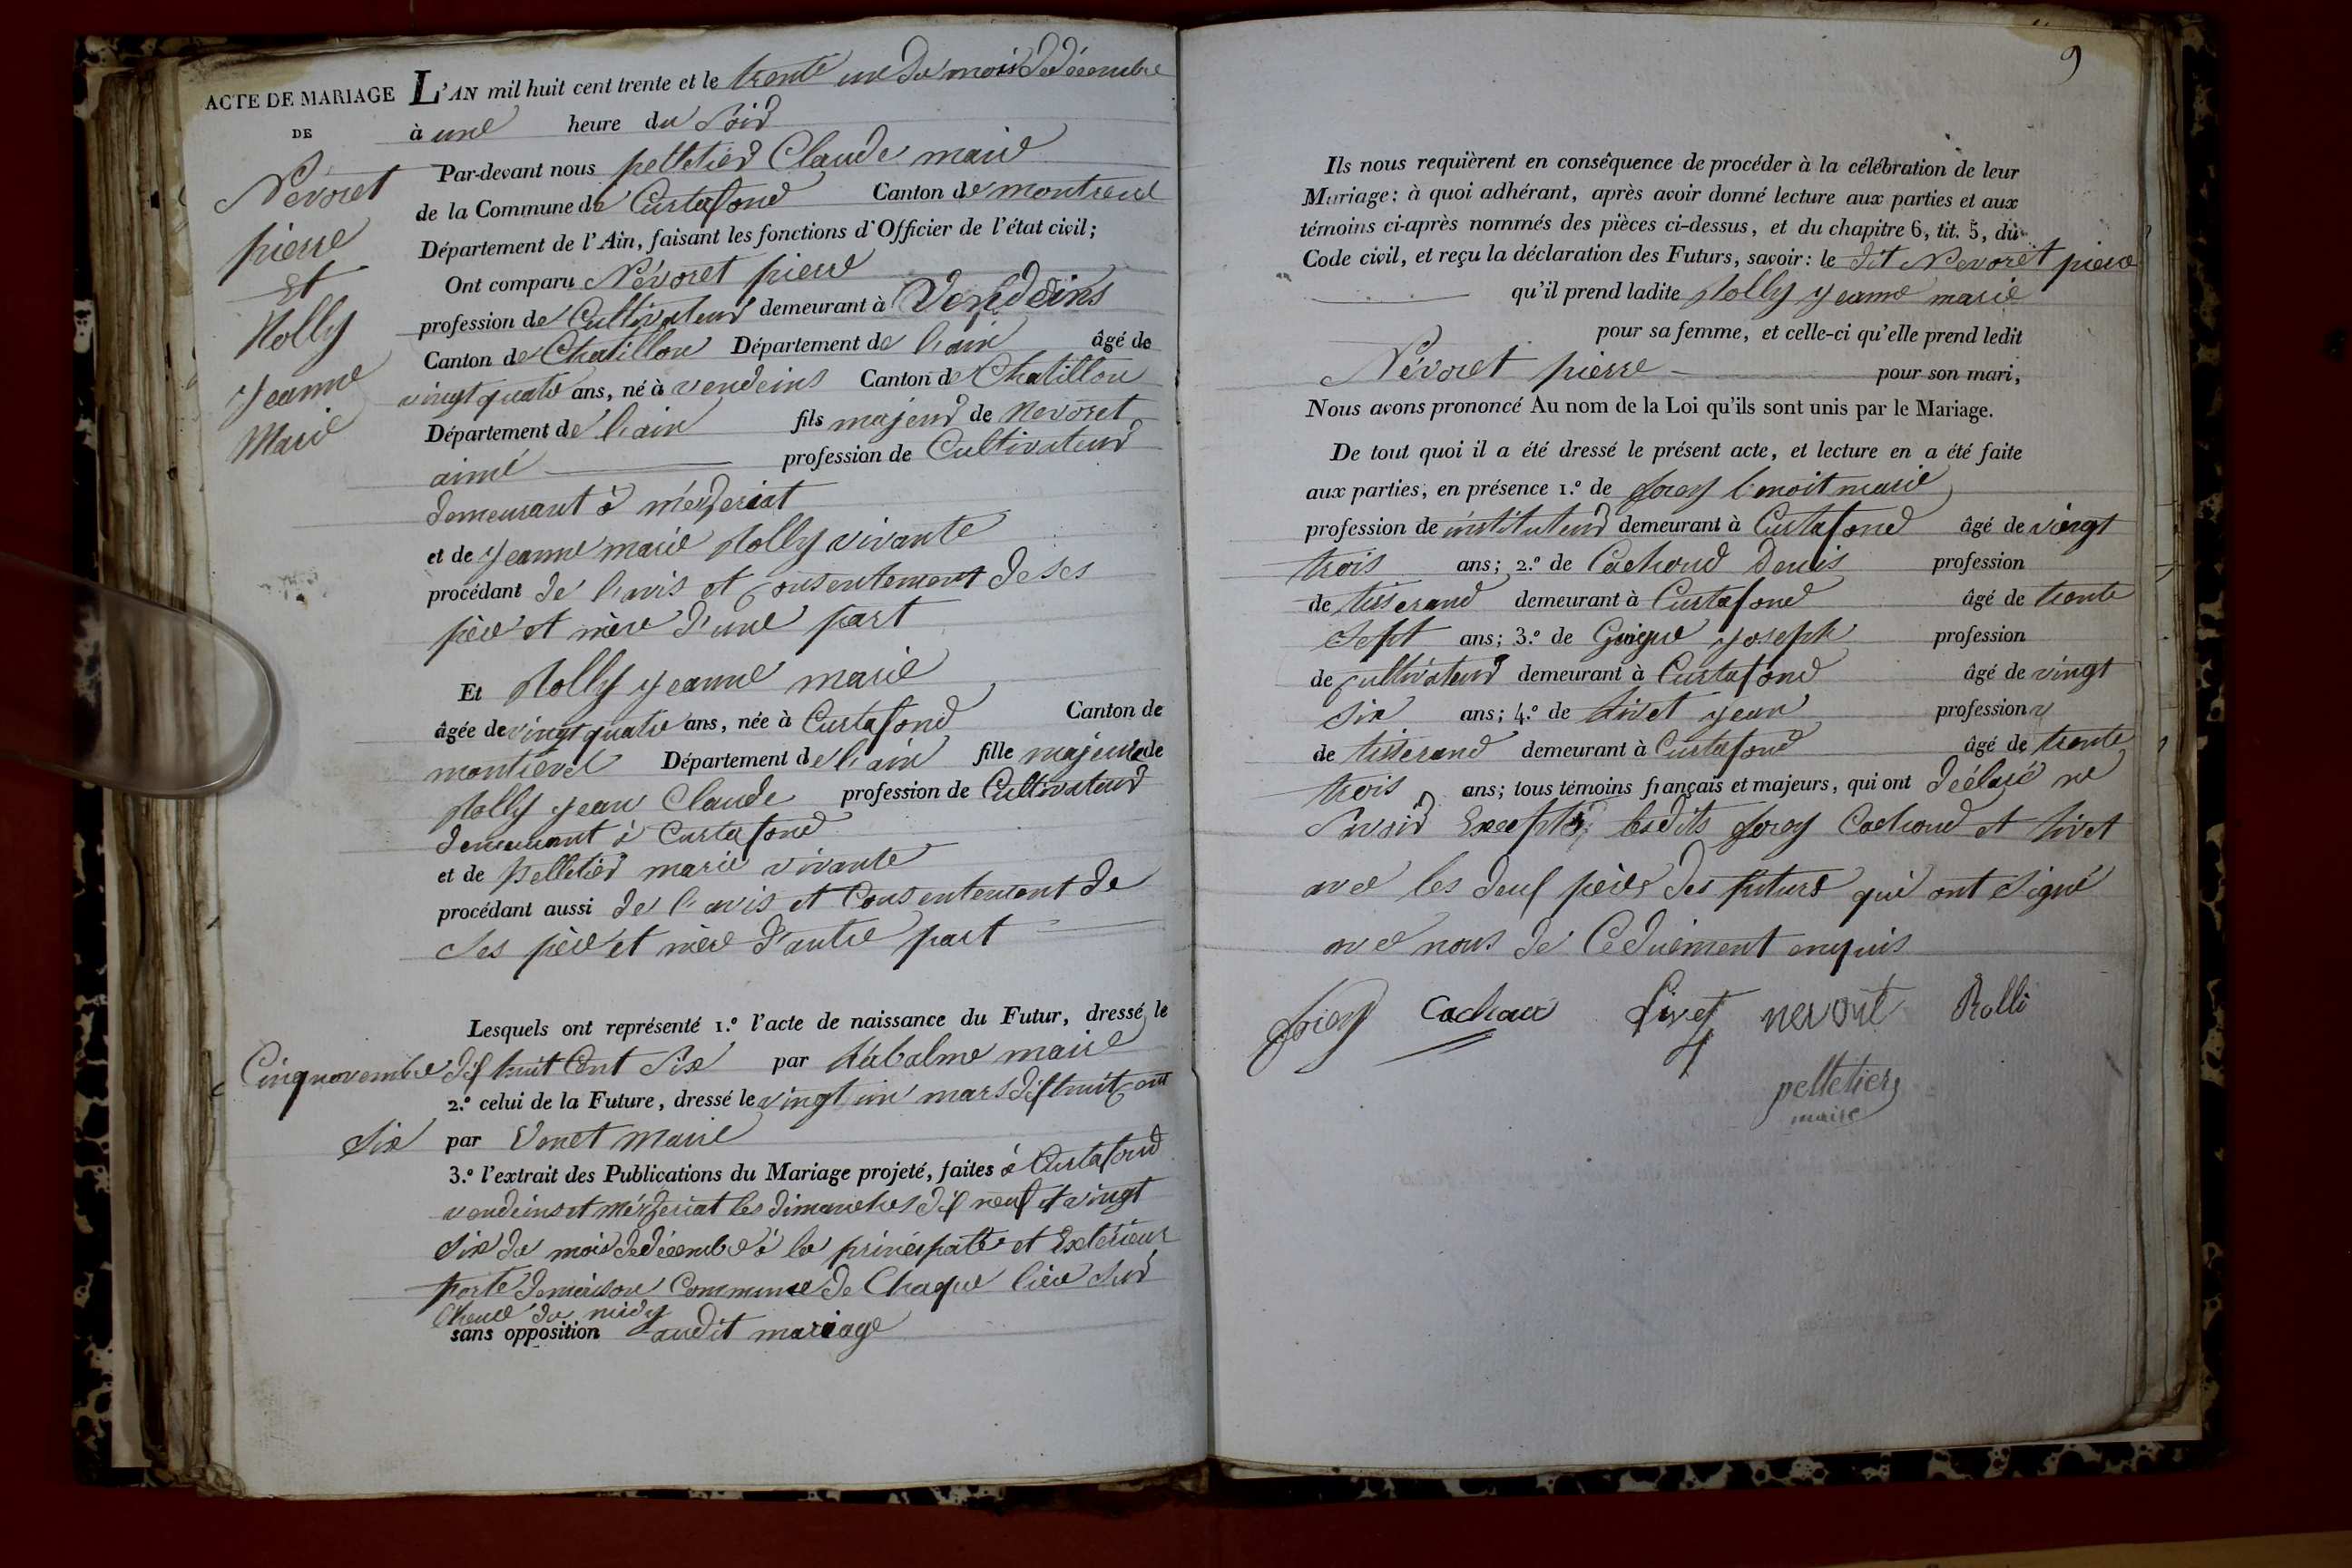 ACTE DE MARIAGE
DE
Névoret
pierre
Et
Rolly
Jeanne
Marie
L'AN mil huit cent trente et le trente un du mois de décembre
à une heure du Soir
Par-devant nous pelletier Claude maire
de la Commune de Curtafond Canton de montrevel
Département de l'Ain, faisant les fonctions d'Officier de l'état civil;
Ont comparu Névoret pierre
profession de Cultivateur demeurant à Vendeins
Canton de Chatillon Département de l'ain âgé de
vingt quatre ans, né à vendeins Canton de Chatillon
Département de l'ain fils majeur de Nevoret
aimé profession de Cultivateur
demeurant à mézeriat
et de Jeanne marie Rolly vivante
procédant de l'avis et consentement de ses
père et mère d'une part
Et Rolly Jeanne marie
âgée de vingt quatre ans, née à Curtafond Canton de
montrevel Département de l'ain fille majeure de
Rolly Jean Claude profession de Cultivateur
demeurant à Curtafond
et de Pelletier marie vivante
procédant aussi de l'avis et Consentement de
Ses père et mère d'autre part
Lesquels ont représenté 1.º l'acte de naissance du Futur, dressé le
Cinq novembre dix huit Cent Six par Labalme maire
2.º celui de la Future, dressé le vingt un mars dix huit cent
Six par Venet Maire
3.º l'extrait des Publications du Mariage projeté, faites à Curtafond
vendeins et mézeriat les dimanches dix neuf et vingt
Six du mois de décembre à la principalle et Extérieur
porte de maison Commune de Chaque lieu Sur
l'heure du midy
sans opposition audit mariage
9
Ils nous requièrent en conséquence de procéder à la célébration de leur
Mariage: à quoi adhérant, après avoir donné lecture aux parties et aux
témoins ci-après nommés des pièces ci-dessus, et du chapitre 6, tit. 5, du
Code civil, et reçu la déclaration des Futurs, savoir: le dit Nevoret pierre
qu'il prend ladite Rolly Jeanne marie
pour sa femme, et celle-ci qu'elle prend ledit
Névoret pierre pour son mari,
Nous avons prononcé Au nom de la Loi qu'ils sont unis par le Mariage.
De tout quoi il a été dressé le présent acte, et lecture en a été faite
aux parties, en présence 1.º de benoit marie
profession de instituteur demeurant à Curtafond âgé de vingt
trois ans; 2.º de Cachoud Denis profession
de tisserand demeurant à Curtafond âgé de trente
Sept ans; 3.º de Guigue Joseph profession
de cultivateur demeurant à Curtafond âgé de vingt
Six ans; 4.º de Livet Jean profession
de tisserand demeurant à Curtafond âgé de trente
trois ans; tous témoins français et majeurs, qui ont déclaré ne
Savoir Excepté lesdits Cachoud et Livet
avec les deux pères des futurs qui ont Signé
avec nous de Ce duement enquis
Cachoux Livet nevoret Rolli
pelletier
maire